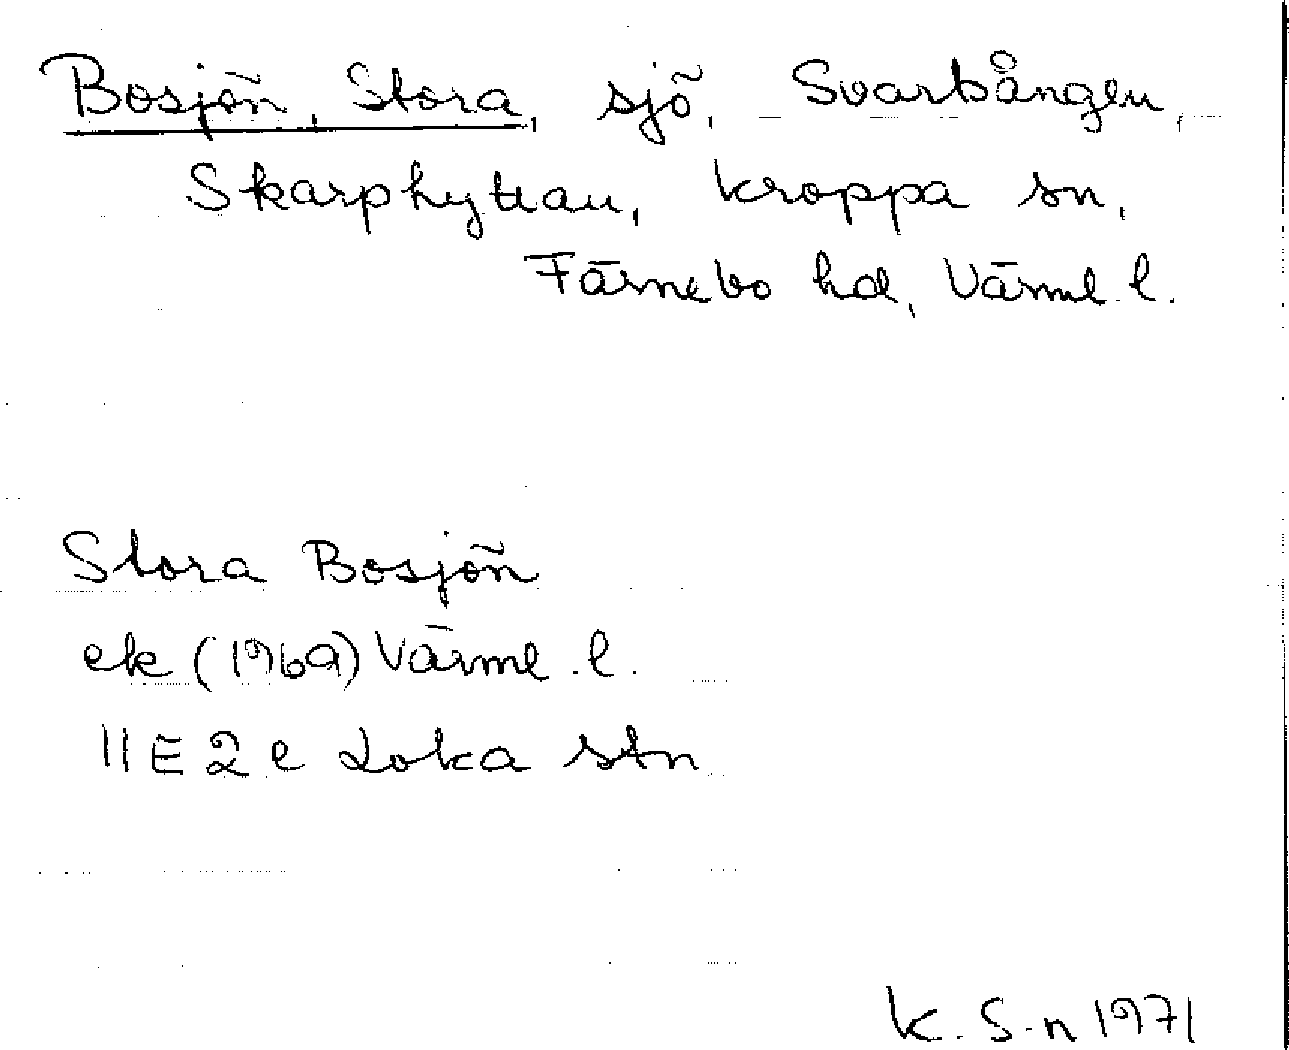 Bosjön, Stora, sjö, Svartbången,
Skarphyttan, Kroppa sn,
Färnebo hd, Värml. l.
Stora Bosjön
ek (1969) Värml. l.
11E 2 e Loka stn
K. S-n 1971